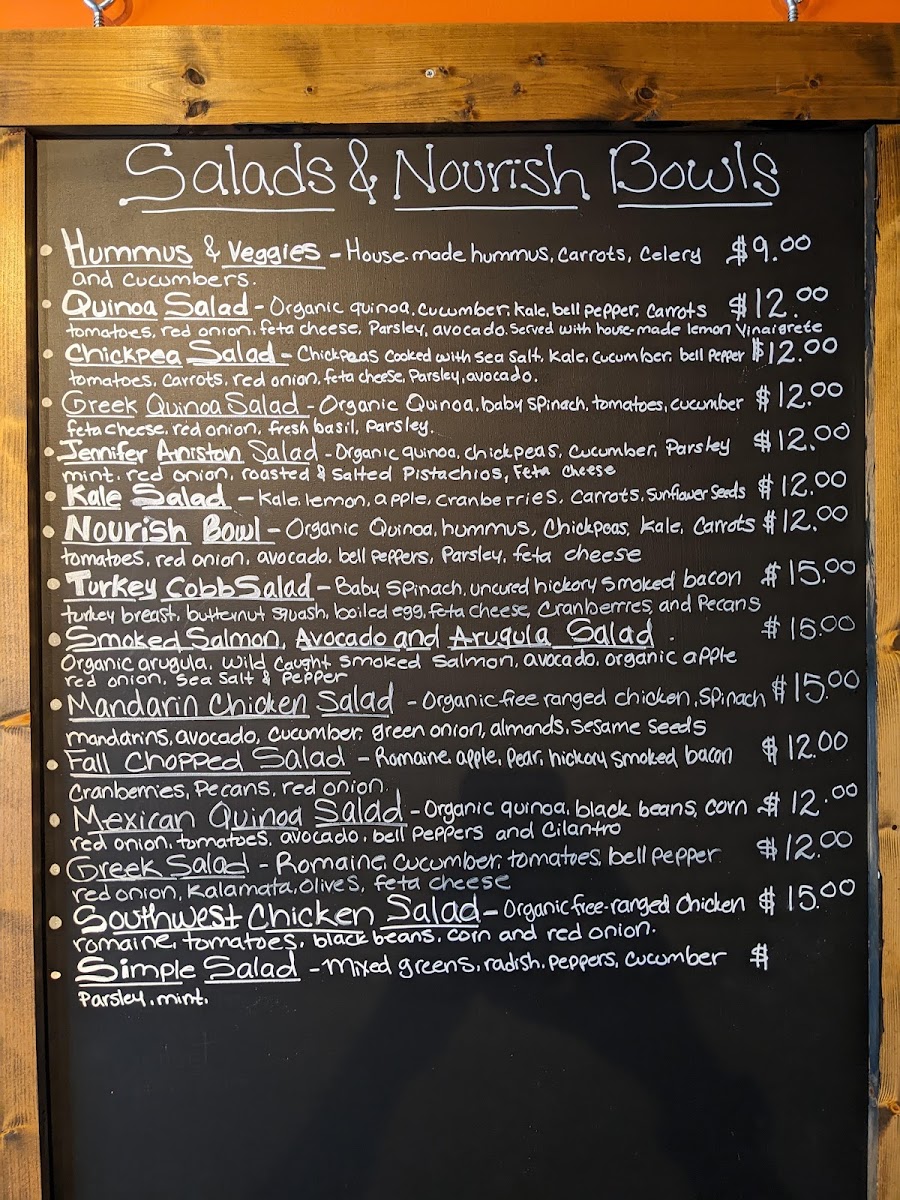 Salads & Nourish Bowls
Hummus & Veggies - House-made hummus, carrots, celery $9.00
and cucumbers.
Quinoa Salad - Organic quinoa, cucumber, kale, bell pepper, carrots $12.00
tomatoes, red onion, feta cheese, Parsley, avocado. Served with house-made lemon Vinaigrete
Chickpea Salad - Chickpeas cooked with sea salt, kale, cucumber, bell pepper $12.00
tomatoes, carrots, red onion, feta cheese, Parsley, avocado.
Greek Quinoa Salad - Organic Quinoa, baby spinach, tomatoes, cucumber $12.00
feta cheese, red onion, fresh basil, Parsley.
Jennifer Aniston Salad - Organic quinoa, chickpeas, cucumber, Parsley $12.00
mint, red onion, roasted & salted Pistachios, Feta cheese
Kale Salad - Kale, lemon, apple, cranberries, carrots, sunflower seeds $12.00
Nourish Bowl - Organic Quinoa, hummus, Chickpeas, Kale, Carrots $12.00
tomatoes, red onion, avocado, bell peppers, Parsley, feta cheese
Turkey Cobb Salad - Baby Spinach, uncured hickory smoked bacon $15.00
turkey breast, butternut squash, boiled egg, feta cheese, Cranberrries, and Pecans
Smoked Salmon, Avocado and Arugula Salad - $15.00
Organic arugula, wild caught smoked salmon, avocado, organic apple
red onion, sea salt & pepper
Mandarin Chicken Salad - Organic free ranged chicken, spinach $15.00
mandarins, avocado, cucumber, green onion, almonds, sesame seeds
Fall Chopped Salad - Romaine, apple, Pear, hickory smoked bacon $12.00
Cranberries, Pecans, red onion.
Mexican Quinoa Salad - Organic quinoa, black beans, corn $12.00
red onion, tomatoes, avocado, bell peppers and Cilantro
Greek Salad - Romaine, cucumber, tomatoes, bell pepper $12.00
red onion, Kalamata, olives, feta cheese
Southwest Chicken Salad - Organic free-ranged chicken $15.00
romaine, tomatoes, black beans, corn and red onion.
Simple Salad - Mixed greens, radish, peppers, cucumber $
Parsley, mint.